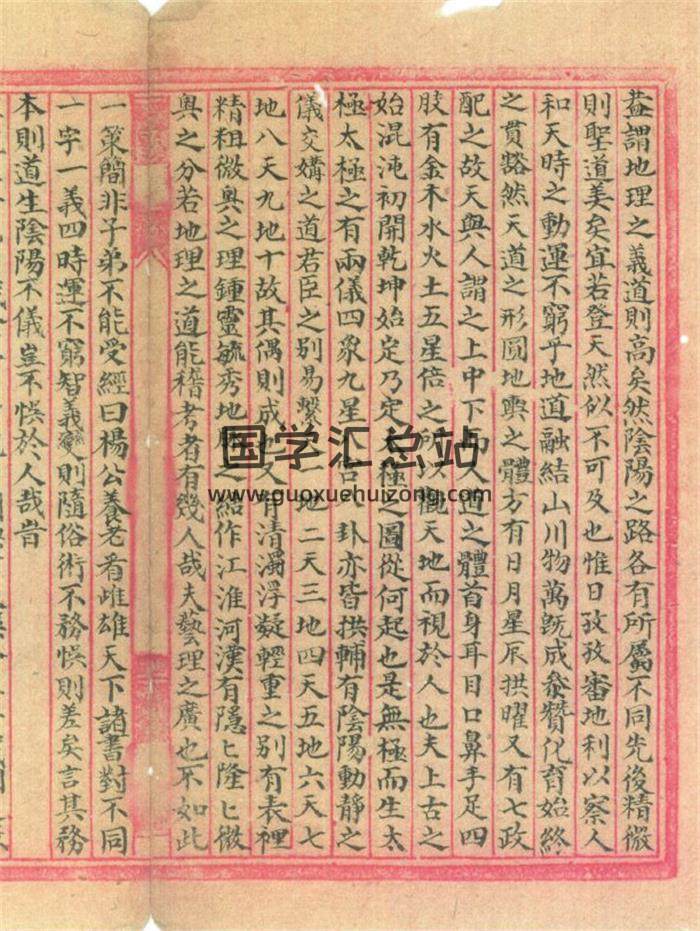 蓋謂地理之義道則高矣然陰陽之路各有所屬不同先後精微
則聖道美矣宜若登天然似不可及也惟日孜孜審地利以察人
和天時之動運不窮乎地道融結山川物萬旣成叅贊化育始終
之貫豁然天道之形圓地輿之體方有日月星辰拱曜又有七政
配之故天與人謂之上中下而人道之體首身耳目口鼻手足四
肢有金木水火土五星倍之所以觀天地而視於人也夫上古之
始混沌初開乾坤始定乃定太極之圖從何起也是無極而生太
極太極之有兩儀四象九星八吉卦亦皆拱輔有陰陽動靜之
儀交媾之道君臣之別易繫天一地二天三地四天五地六天七
地八天九地十故其偶則成也又有清濁浮凝輕重之別有表裡
精粗微奥之理鍾靈毓秀地脉之結作江淮河漢有隱匕隆匕微
與之分若地理之道能稽考者有幾人哉夫藝理之廣也不如此
一策簡非子弟不能受經曰楊公養老看雌雄天下諸書對不同
一字一義四時運不窮智義變則隨俗術不務悞則差矣言其務
本則道生陰陽不儀豈不悞於人哉昔
国学汇总站
www.guoxuehuizong.com